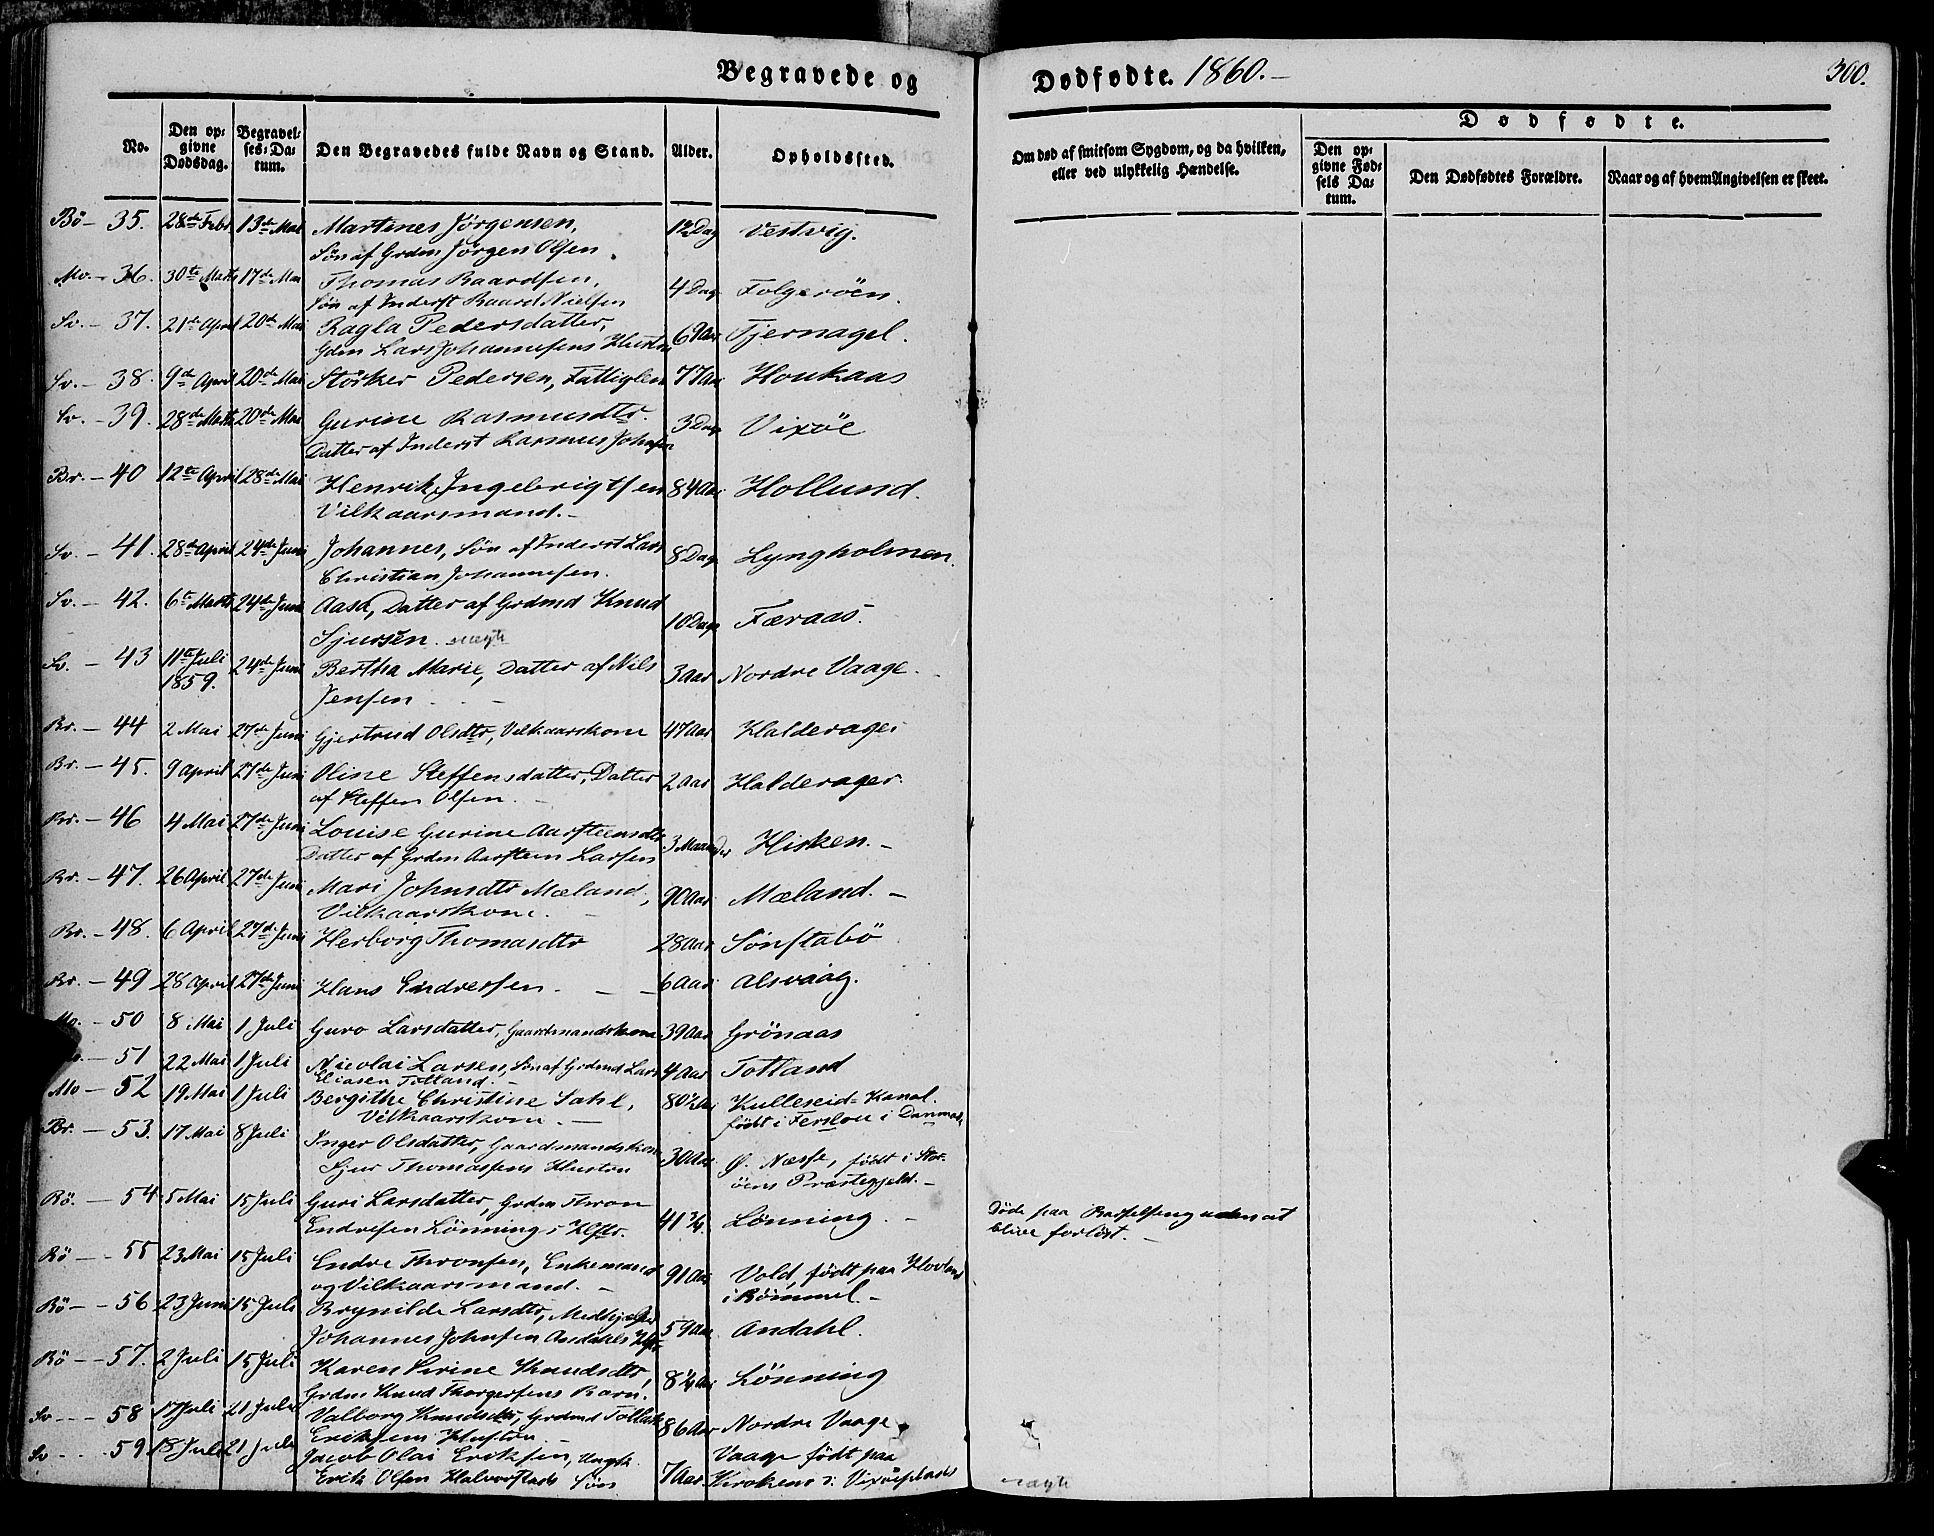 Begravede og
Dødfødte. 1860.-
300.
No.
Den op-
givne
Dødsdag.
Begravel-
ses-Da-
tum.
Den Begravedes fulde Navn og Stand.
Alder.
Opholdssted.
Om død af smitsom Sygdom, og da hvilken,
eller ved ulykkelig Hændelse.
Dødfødte.
Den op-
givne Fød-
sels Da-
tum.
Den Dødfødtes Forældre.
Naar og af hvem Angivelsen er skeet.
Bö - 35. 28de Febr 13de Mai Martines Jörgensen, 12 Dag Vestvig.
Sön af Grdm Jörgen Olsen.
Mo. - 36. 30te Marts 17de Mai Thomas Baardsen, 4 Dag Folgeröen.
Sön af Inderst Baard Nielsen
Sv. - 37. 21de April 20de Mai Ragla Pedersdatter, 69 Aar Tjernagel.
Gdm Lars Johannesens Hustru
Sv. - 38. 9de April 20de Mai Störker Pedersen, Fattiglem 77 Aar Houkaas
Sv. - 39. 28de Marts 20de Mai Gurine Rasmusdtr. 3 Dag Vixöe
Datter af Inderst Rasmus Johnsen
Br. - 40 12te April 28de Mai Henrik Ingebrigtsen 84 Aar Hollund.
Vilkaarsmand.-
Sv. - 41. 28de April 24de Juni Johannes, Sön af Inderst Lars 8 Dag Lyngholmen.
Christian Johannesen.
Sv. - 42. 6te Marts 24de Juni Aasa, Datter af Grdmd Knud 10 Dage Færaas.
Sjursen. uægte
Sv. - 43 11te Juli 1859. 24de Juni Bertha Marie, Datter af Nils 3 Aar Nordre Vaage.
Jensen
Br. - 44 2 Mai 27de Juni Gjertrud Olsdtr, Vilkaarskone 47 Aar Halderager
Br. - 45. 9 April 27de Juni Oline Steffensdatter, Datter 2 Aar Halderager
af Steffen Olsen.
Br. - 46 4 Mai 27de Juni Louise Gurine Aarsteensdtr 3 Maaneder Hisken.-
Datter af Grdm Aarsteen Larsen
Br. - 47. 26 April 27de Juni Mari Johnsdtr Mæland, 90 Aar Mæland.-
Vilkaarskone.
Br. - 48. 6 April 27de Juni Herborg Thomasdtr 28 Aar Sönstabö
Br. - 49 28 April 27de Juni Hans Endresen. 6 Aar Alsvaag.
Mo. - 50 8 Mai 1 Juli Guro Larsdatter, Gaardmandskone 39 Aar Grönaas
- 51 22 Mai 1 Juli Nicolai Larsen, Sön af Grdmd Lars 4 Aar Totland
Eliasen Totland.-
Mo - 52 19 Mai 1 Juli Bergithe Christine Dahl, 80½ Aar Kulleseid-Kanal.
Vilkaarskone.- födt i Ferslou i Danmark
Br. - 53. 17 Mai 8 Juli Inger Olsdatter, Gaardmandskone 30 Aar Ø. Næsse, födt i Stor-
Sjur Thomassens Hustru öens Præstegjeld.-
Bö. - 54 5 Mai 15 Juli Guri Larsdatter, Grdm Thron 41¾. Lönning.- Döde paa Barselseng uden at
Endresen Lönning's Hstr. blive forlöst.-
Bö - 55 23 Mai 15 Juli Endre Thronsen, Enkemand 91 Aar Vold, födt paa Hovland
og Vilkaarsmand.- i Bömmel.-
Bö - 56 23 Juni 15 Juli Brynilde Larsdtr, Medhjælper 59 Aar Andahl.
Johannes Johnsen Aasdahls Hstr.
Bö - 57. 2 Juli 15 Juli Karen Sirine Knudsdtr, 8¼ Aar Lönning
Grdm Knud Thorgersens Barn.
Sv - 58 17 Juli 21 Juli Valborg Knudsdtr, Grdmd Tollak 86 Aar Nordre Vaage
Eriksens Hustru.-
Sv - 59 18 Juli 21 Juli Jacob Olai Eriksen, Ungk. 7 Aar Vaage födt paa
Erik Olsen Halvorstads Sön Krokene i Vixöepladse
uægte